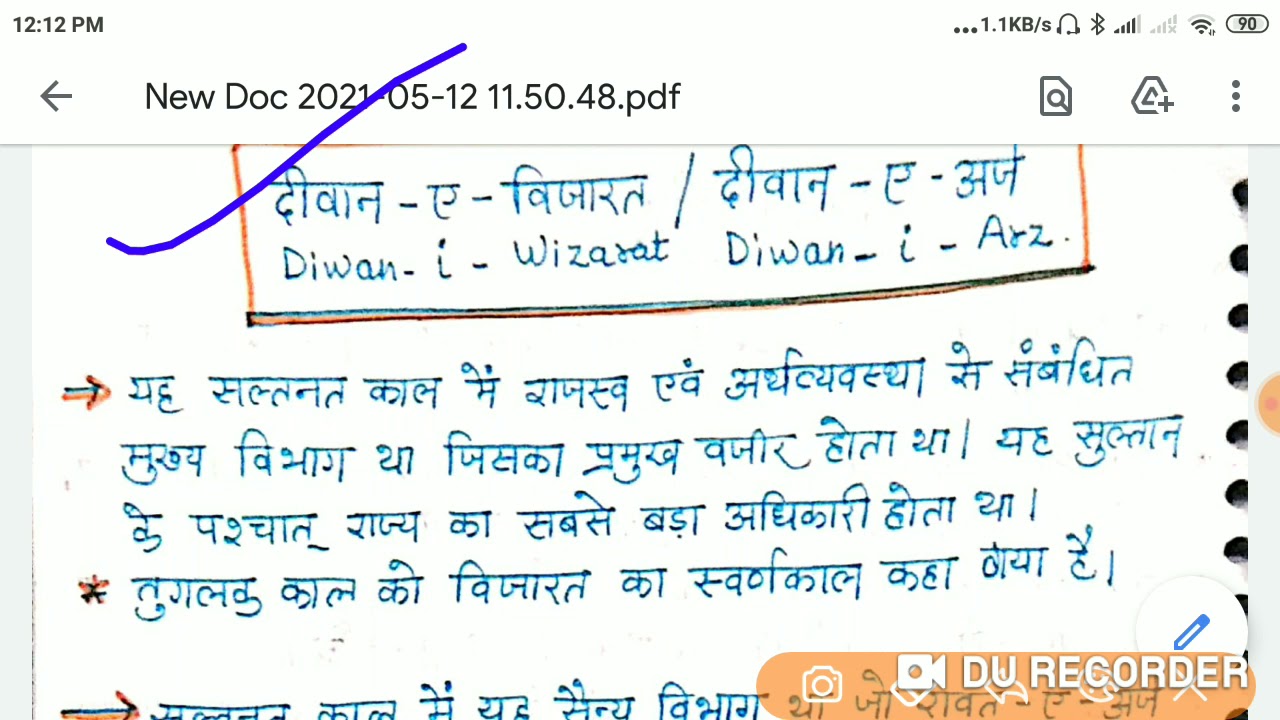 12:12 PM
...1.1KB/s
90
New Doc 2021-05-12 11.50.48.pdf
दीवान - ए - विजारत / दीवान - ए - अर्ज
Diwan - i - Wizarat Diwan - i - Arz.
→ यह सल्तनत काल में राजस्व एवं अर्थव्यवस्था से संबंधित
मुख्य विभाग था जिसका प्रमुख वजीर होता था। यह सुल्तान
के पश्चात् राज्य का सबसे बड़ा अधिकारी होता था।
* तुगलक काल को विजारत का स्वर्णकाल कहा गया है।
→ सल्तनत काल में यह सैन्य विभाग था जो रावत - ए - अर्ज
DU RECORDER